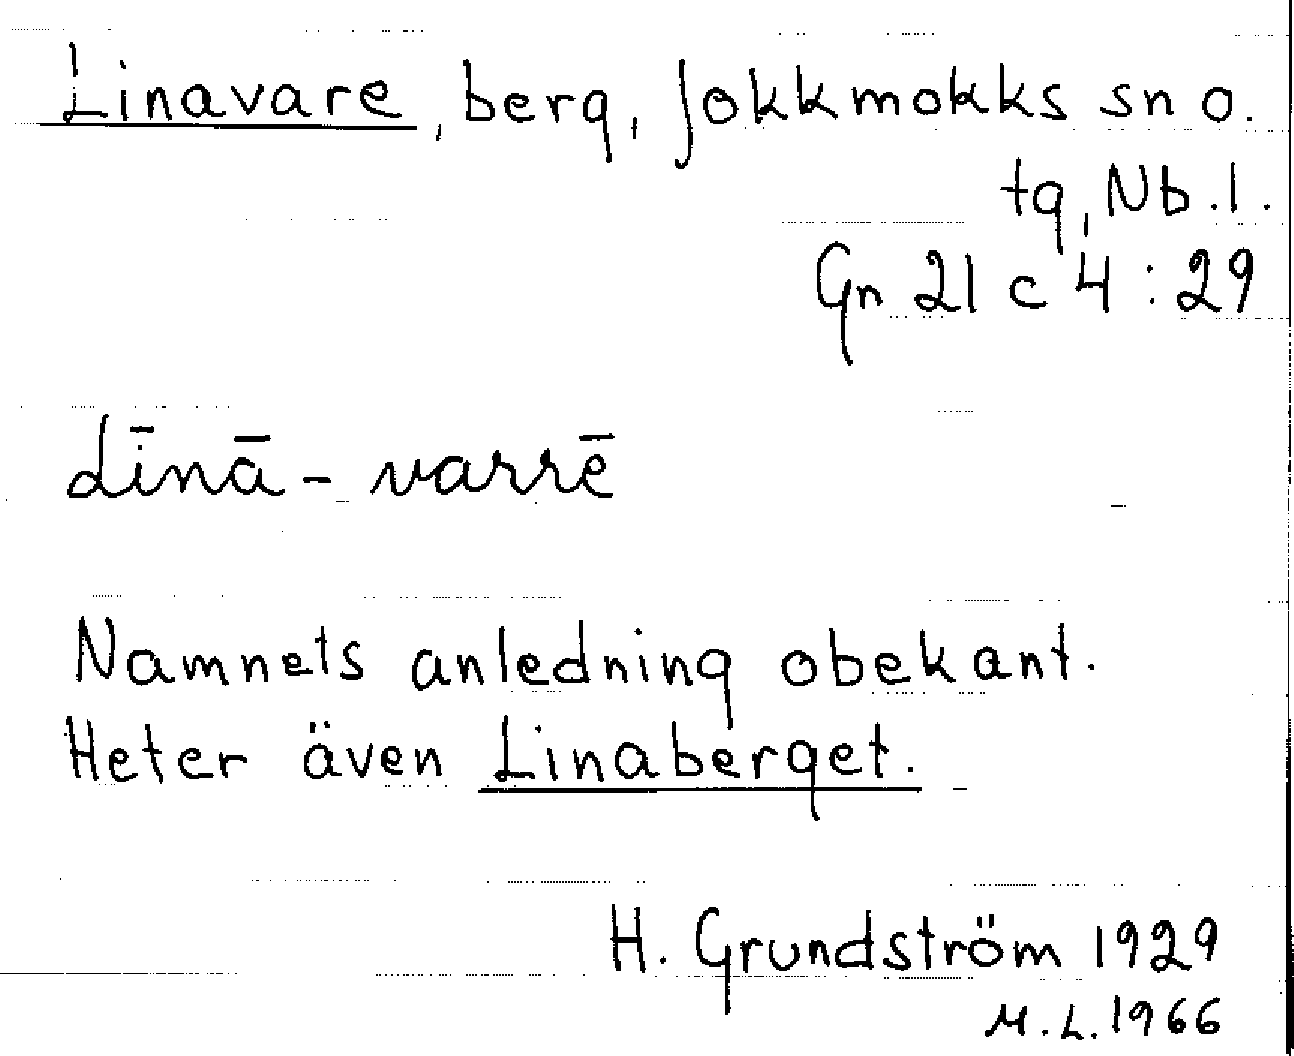 Linavare, berg, Jokkmokks sn o.
tg, Nb.l.
Gn 21 c 4:29
Līnā-varrē
Namnets anledning obekant.
Heter även Linaberget.
H. Grundström 1929
M.L. 1966